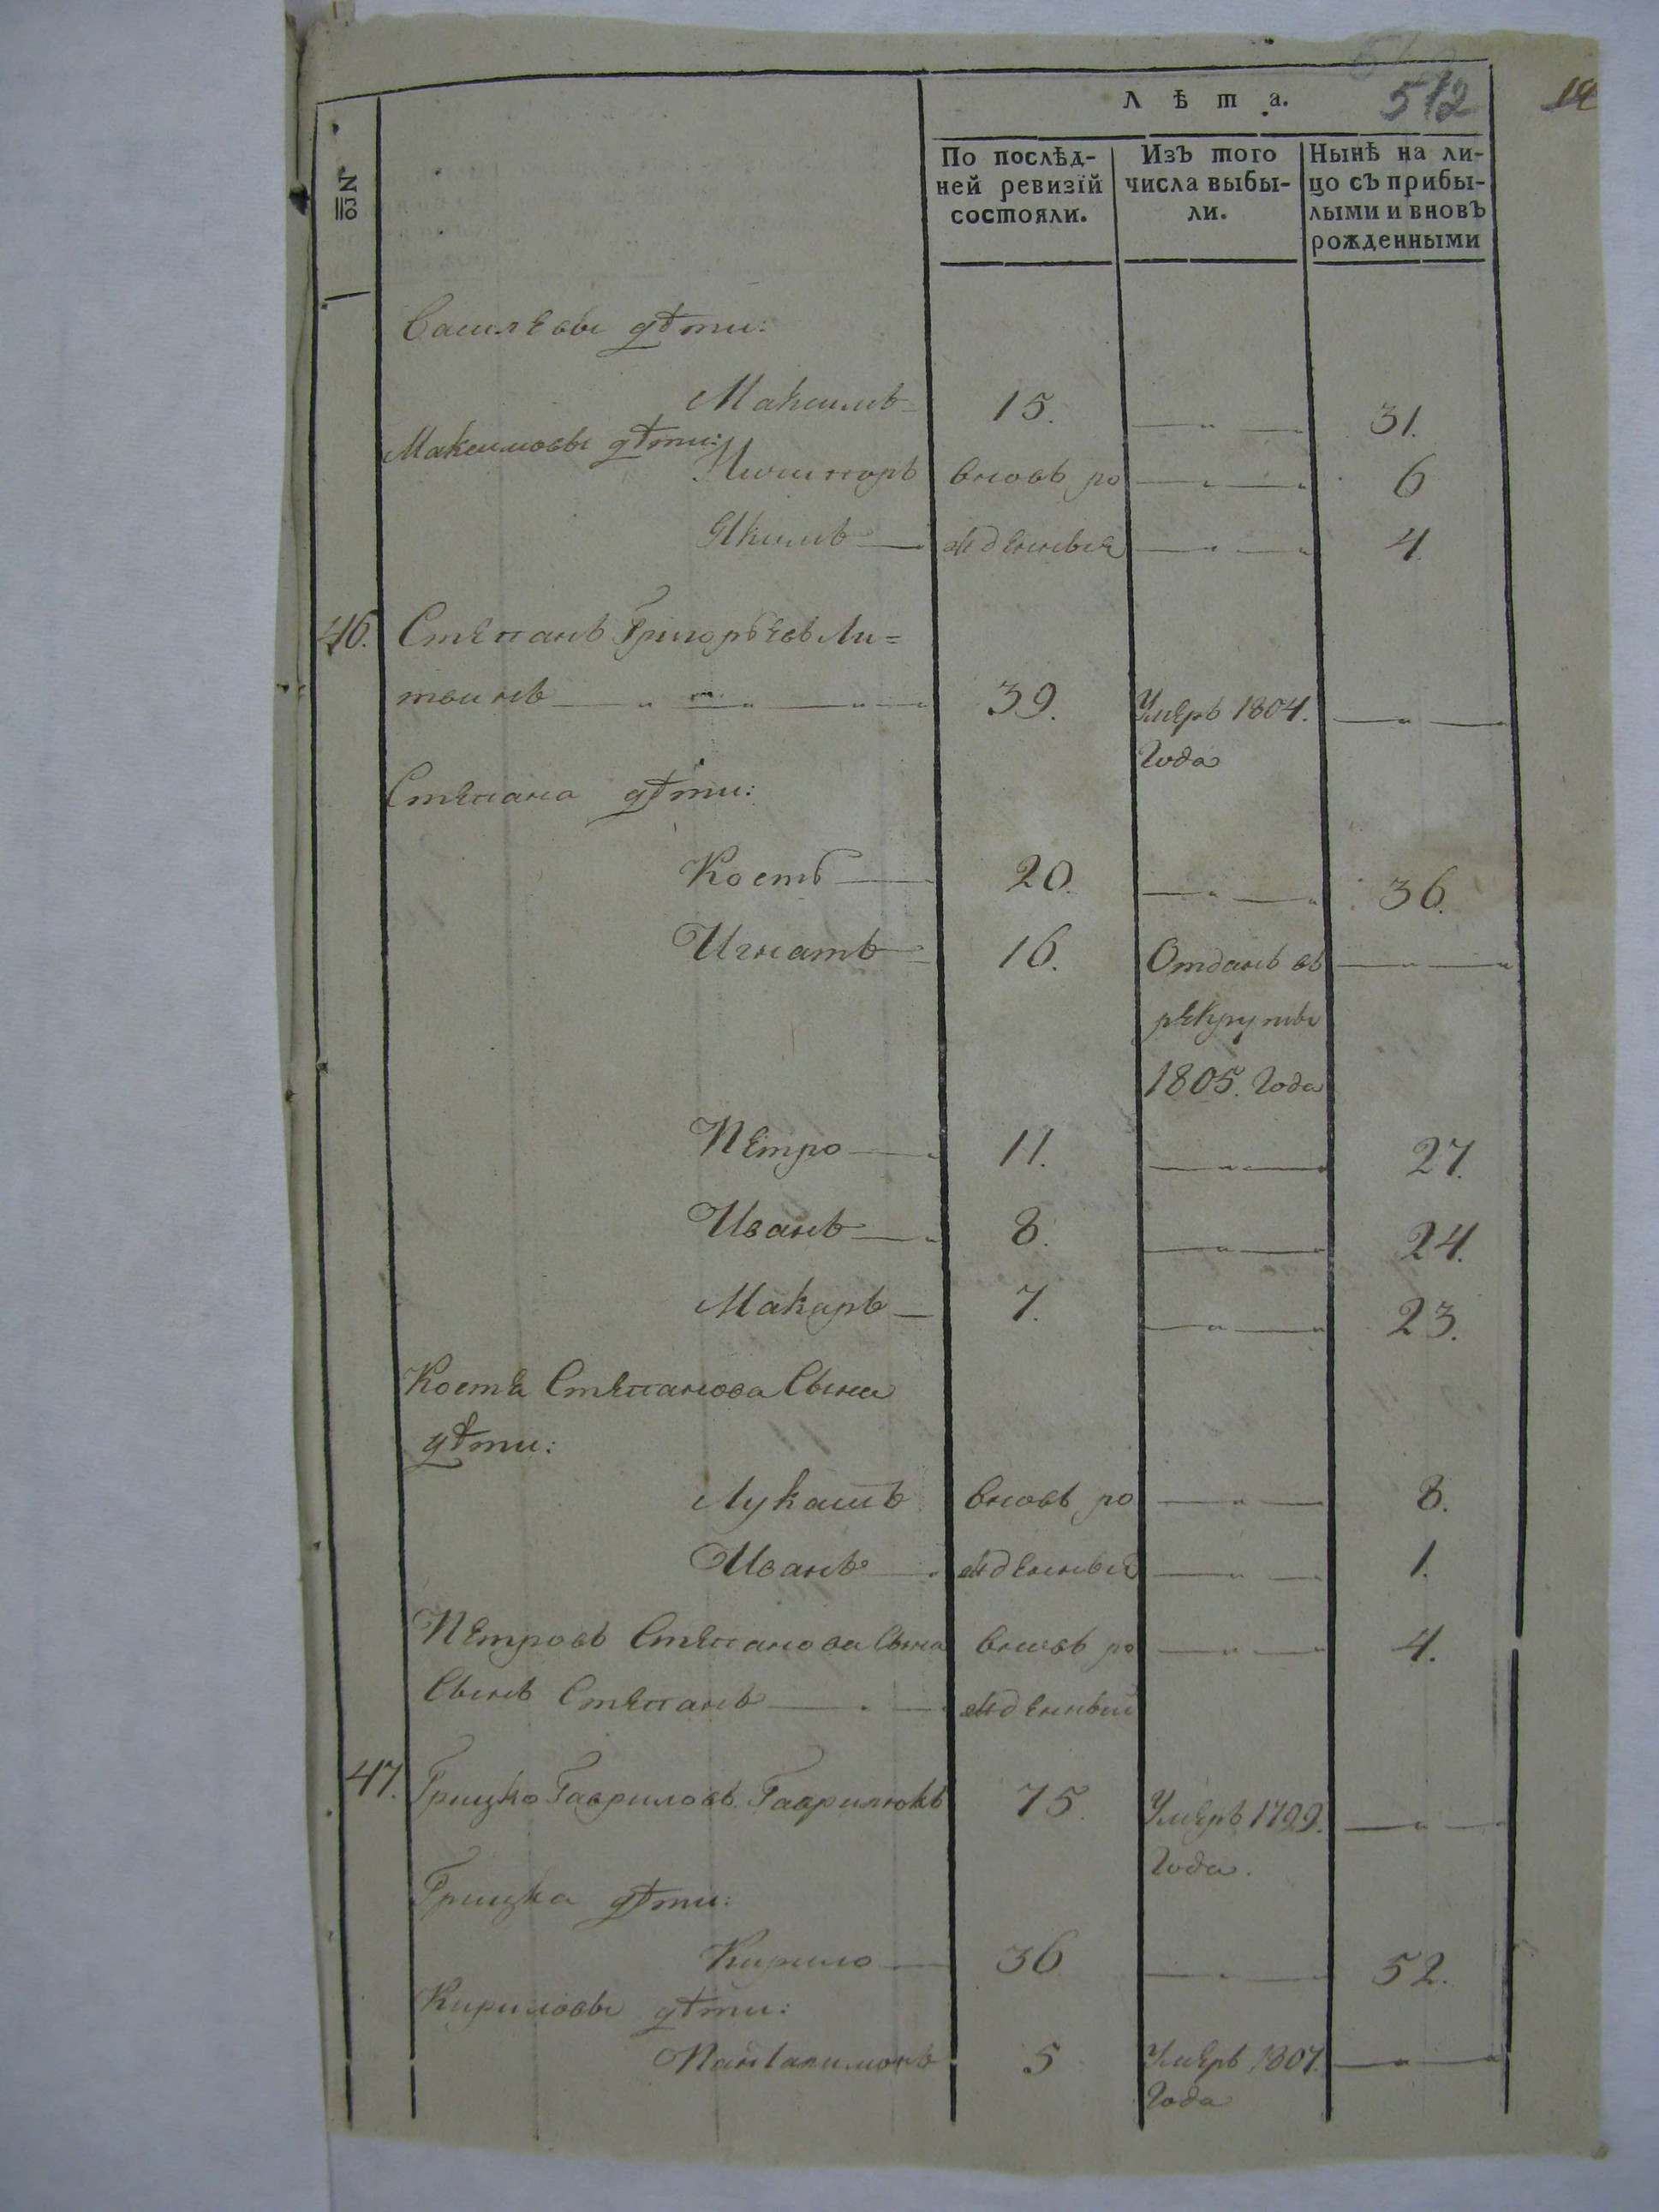 512
14
№
Лѣта.
По послѣд-
ней ревизїй
состояли.
Изъ того
числа выбы-
ли.
Нынѣ на ли-
цо съ прибы-
лыми и вновь
рожденными
Васильевы дѣти:
Максимъ 15. 31.
Максимовы дѣти:
вновь ро 6
Якимъ жденныя 4
46. Степанъ Григорьевъ Ли=
твинъ 39. Умеръ 1804.
Года
Степана дѣти:
Костѣ 20. 36.
Игнатъ 16. Отданъ въ
рекруты
1805. Года
Петро 11. 27.
Иванъ 8. 24.
Макаръ 7. 23.
Костя Степанова Сына
дѣти:
Лукашъ вновь ро 8.
Иванъ жденныя 1.
Петровъ Степанова Сына вновь ро 4.
Сынъ Степанъ жденный
47. Грицко Гавриловъ Гаврилюкъ 75. Умеръ 1799.
Года.
Грицка дѣти:
Кирило 36 52.
Кириловы дѣти:
Панталимонъ 5 Умеръ 1807.
Года